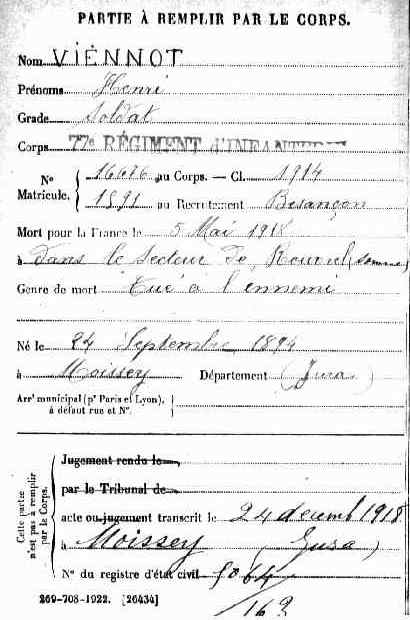 PARTIE À REMPLIR PAR LE CORPS.
Nom VIÉNNOT
Prénoms Henri
Grade Soldat
Corps 77e RÉGIMENT D'INFANTERIE
N° Matricule. { 16676 au Corps. — Cl. 1914
1591 au Recrutement Besançon
Mort pour la France le 5 Mai 1918
à Dans le secteur de Rouvrel (Somme)
Genre de mort Tué à l'ennemi
Né le 24 Septembre 1894
à Moissey Département (Jura)
Arr' municipal (p' Paris et Lyon),
à défaut rue et N°.
Cette partie n'est pas à remplir par le Corps.
Jugement rendu le
par le Tribunal de
acte ou jugement transcrit le 24 décemb 1918
à Moissey (Jura)
N° du registre d'état civil
269-708-1922. [26434]